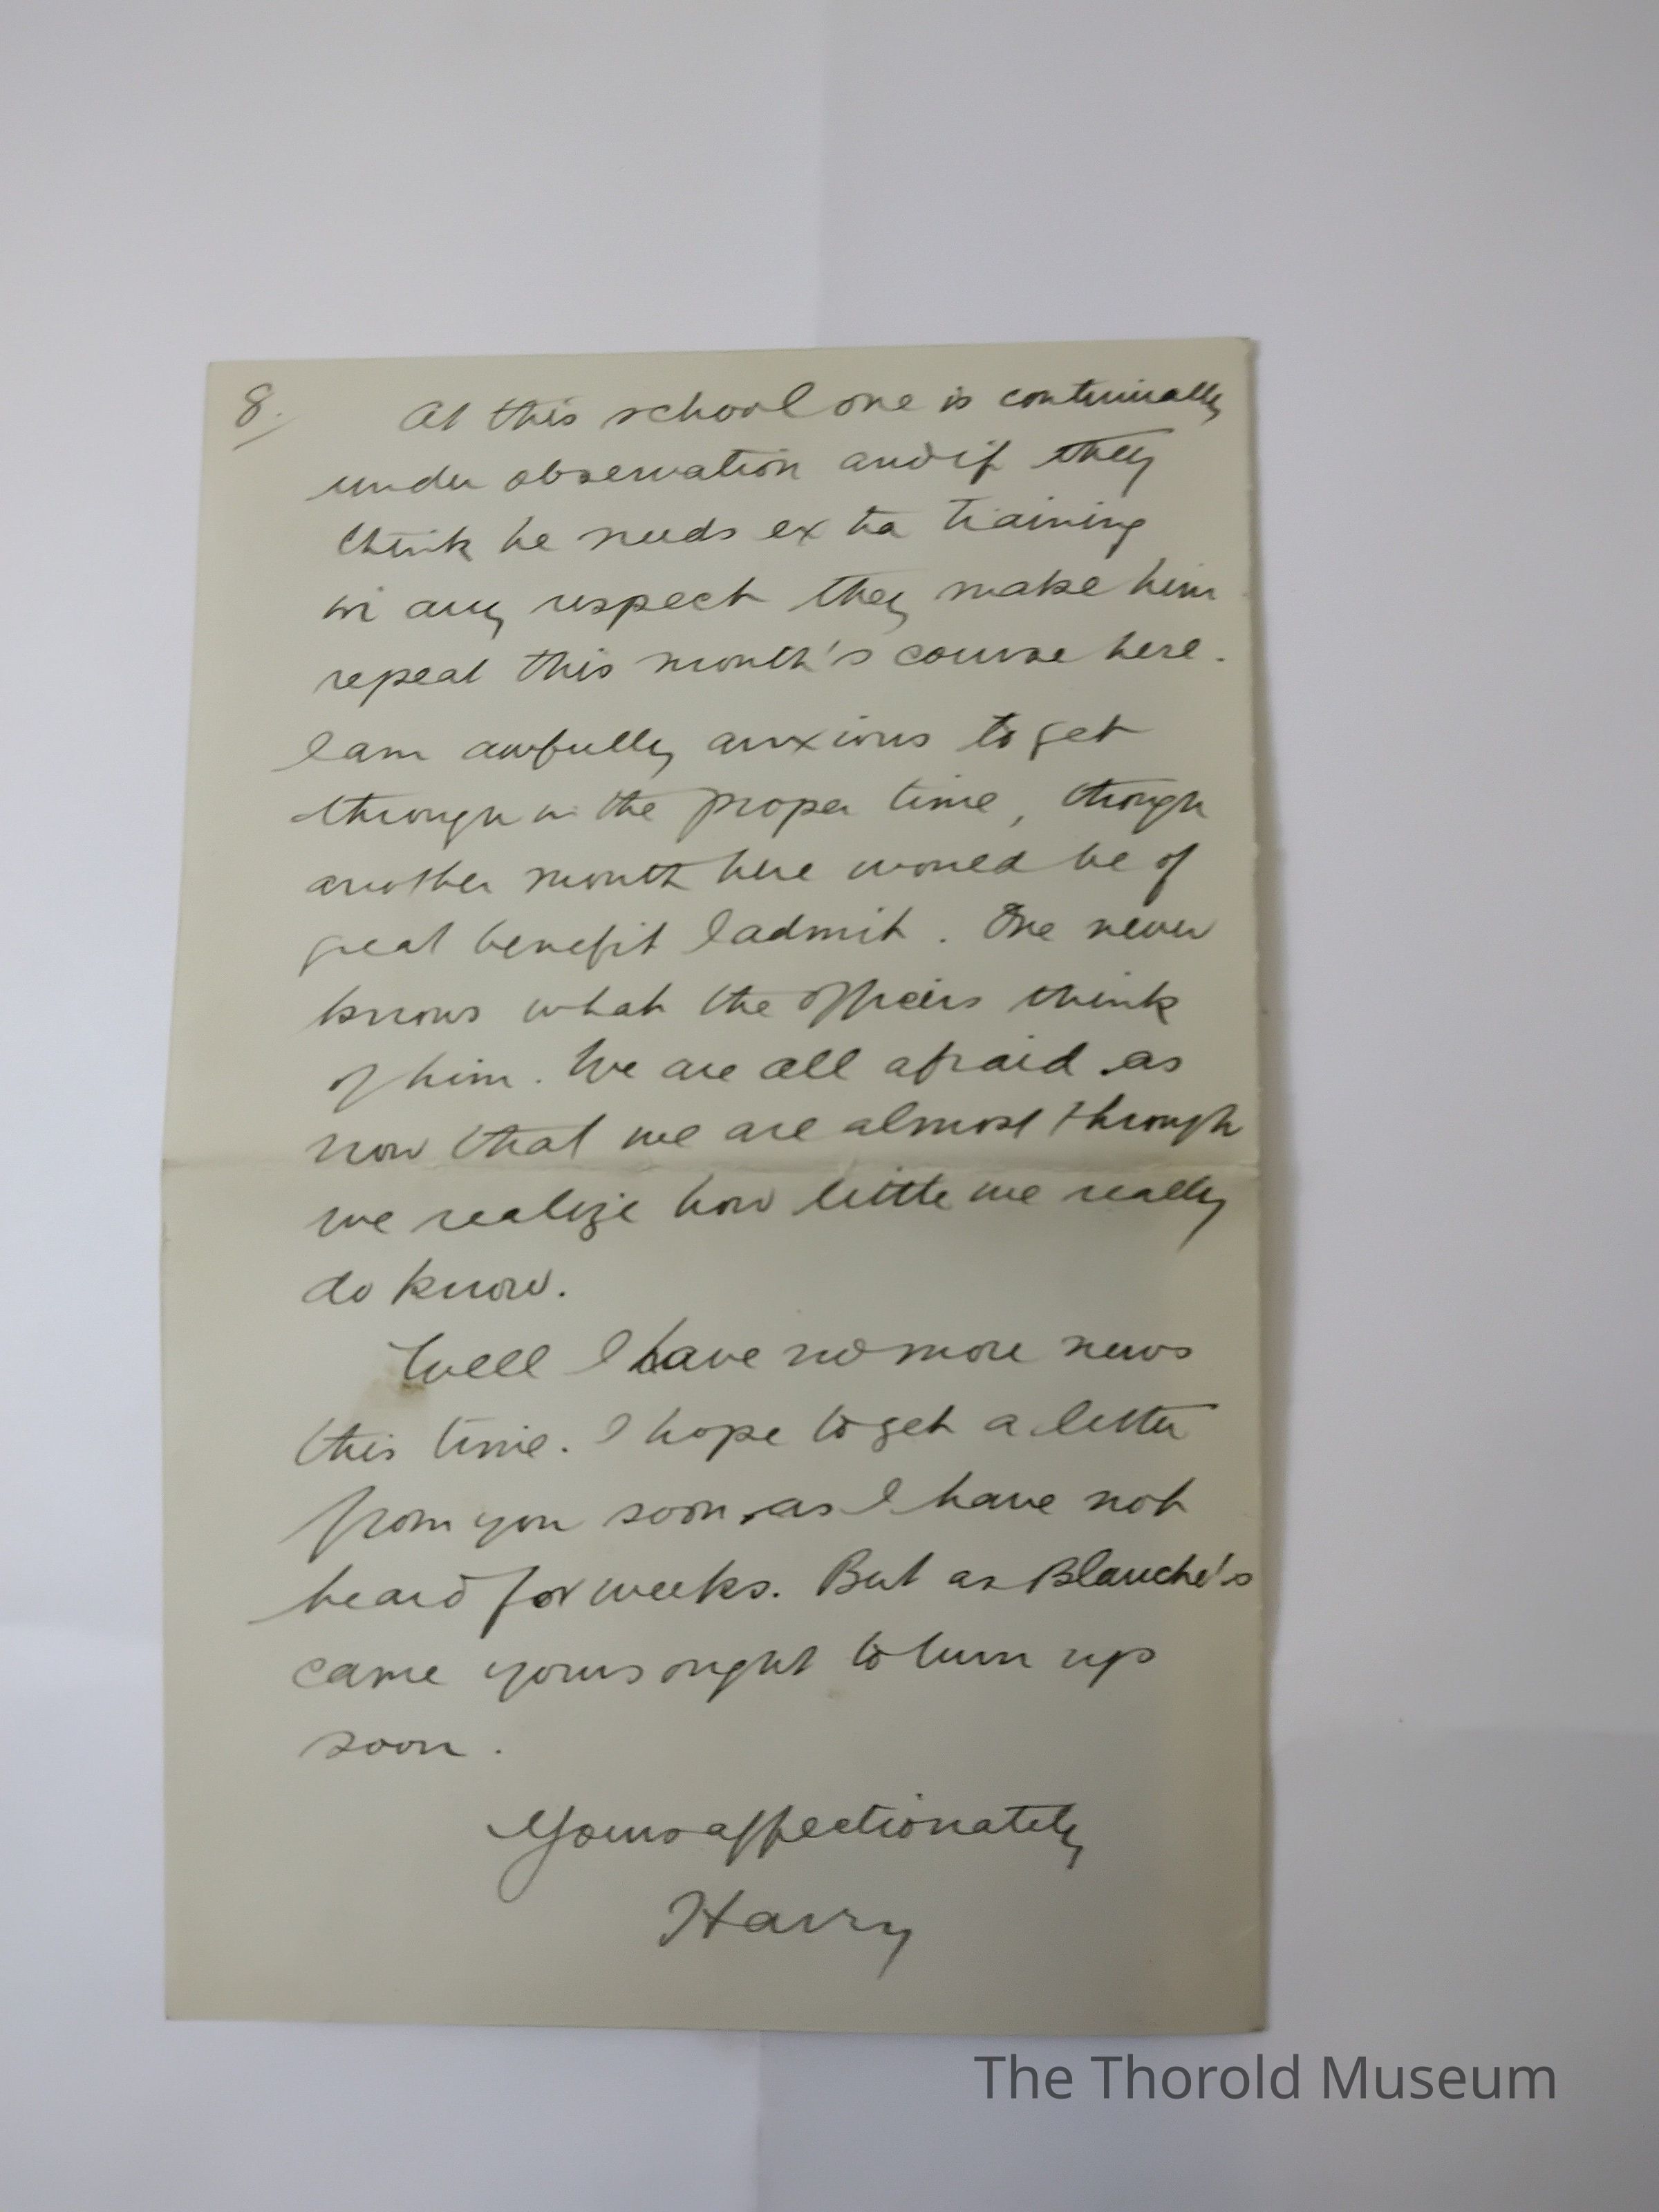 8.
At this school one is continually
under observation and if they
think he needs extra training
in any respect they make him
repeat this month's course here.
I am awfully anxious to get
through in the proper time, though
another month here would be of
great benefit I admit. One never
knows what the officers think
of him. We are all afraid as
now that we are almost through
we realize how little we really
do know.
Well I have no more news
this time. I hope to get a letter
from you soon as I have not
heard for weeks. But as Blanche's
came yours ought to turn up
soon.
Yours affectionately
Harry
The Thorold Museum